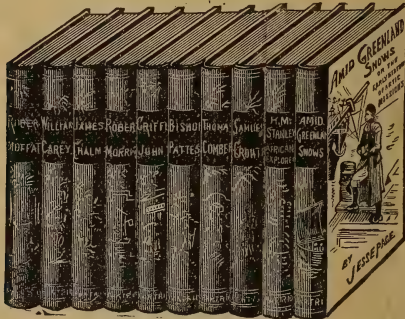 ROBER
MOFFAT
WILLIAM
CAREY
JAMES
CHALM
ROBER
MORRI
GRIFFI
JOHN
BISHOP
PATTES
THOMA
COMBER
SAMUEL
CROWT
H.M.
STANLEY
AFRICAN
EXPLORER
AMID
GREENLAN
SNOWS
AMID GREENLAND
SNOWS
OR THE
OF ARCTIC
MISSIONS
BY JESSE PAGE